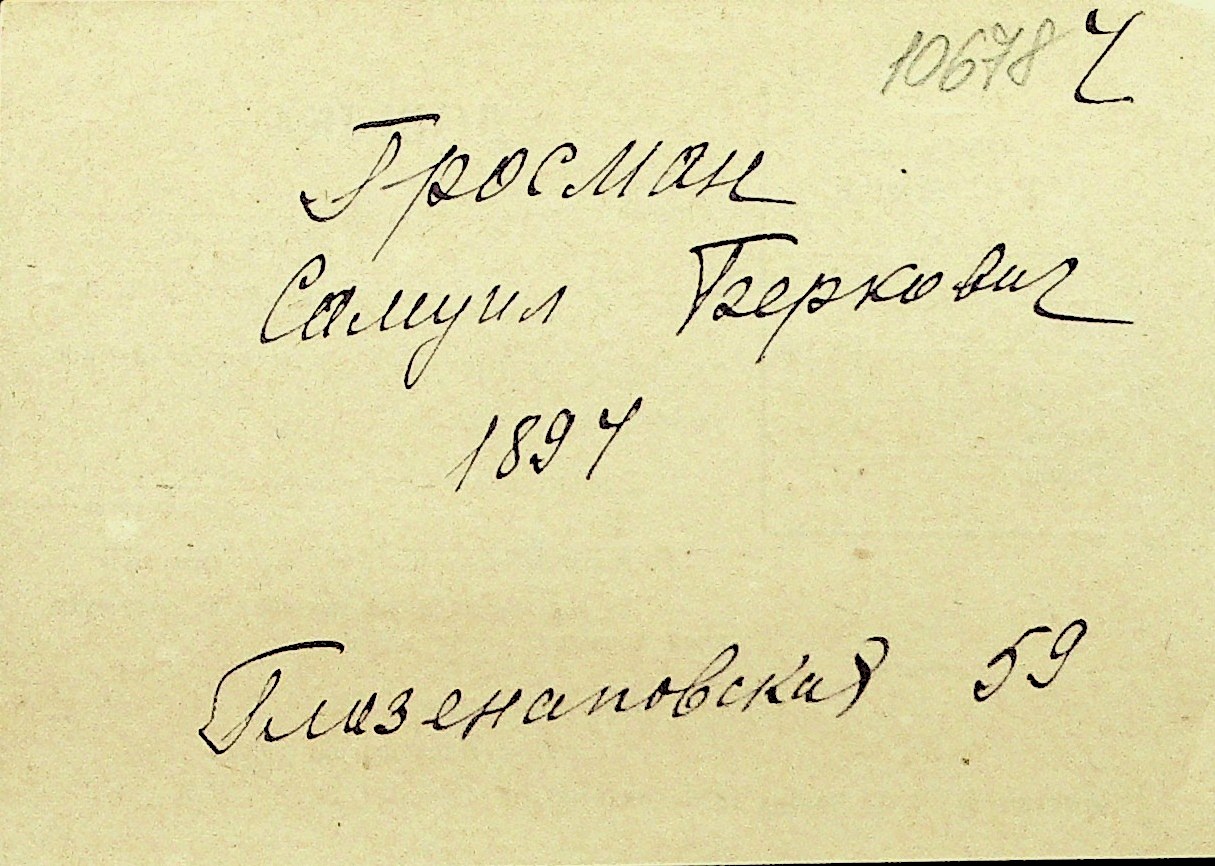 10678 Ч
Гросман
Самуил Беркович
1894
Глазенаповская 59